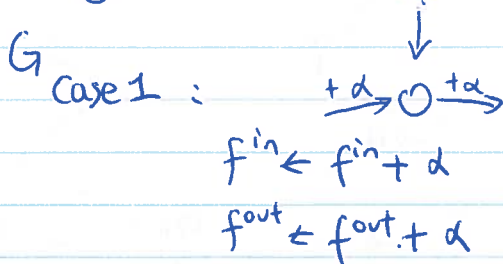 G
Case 1 : +α +α
f^in ← f^in + α
f^out ← f^out + α